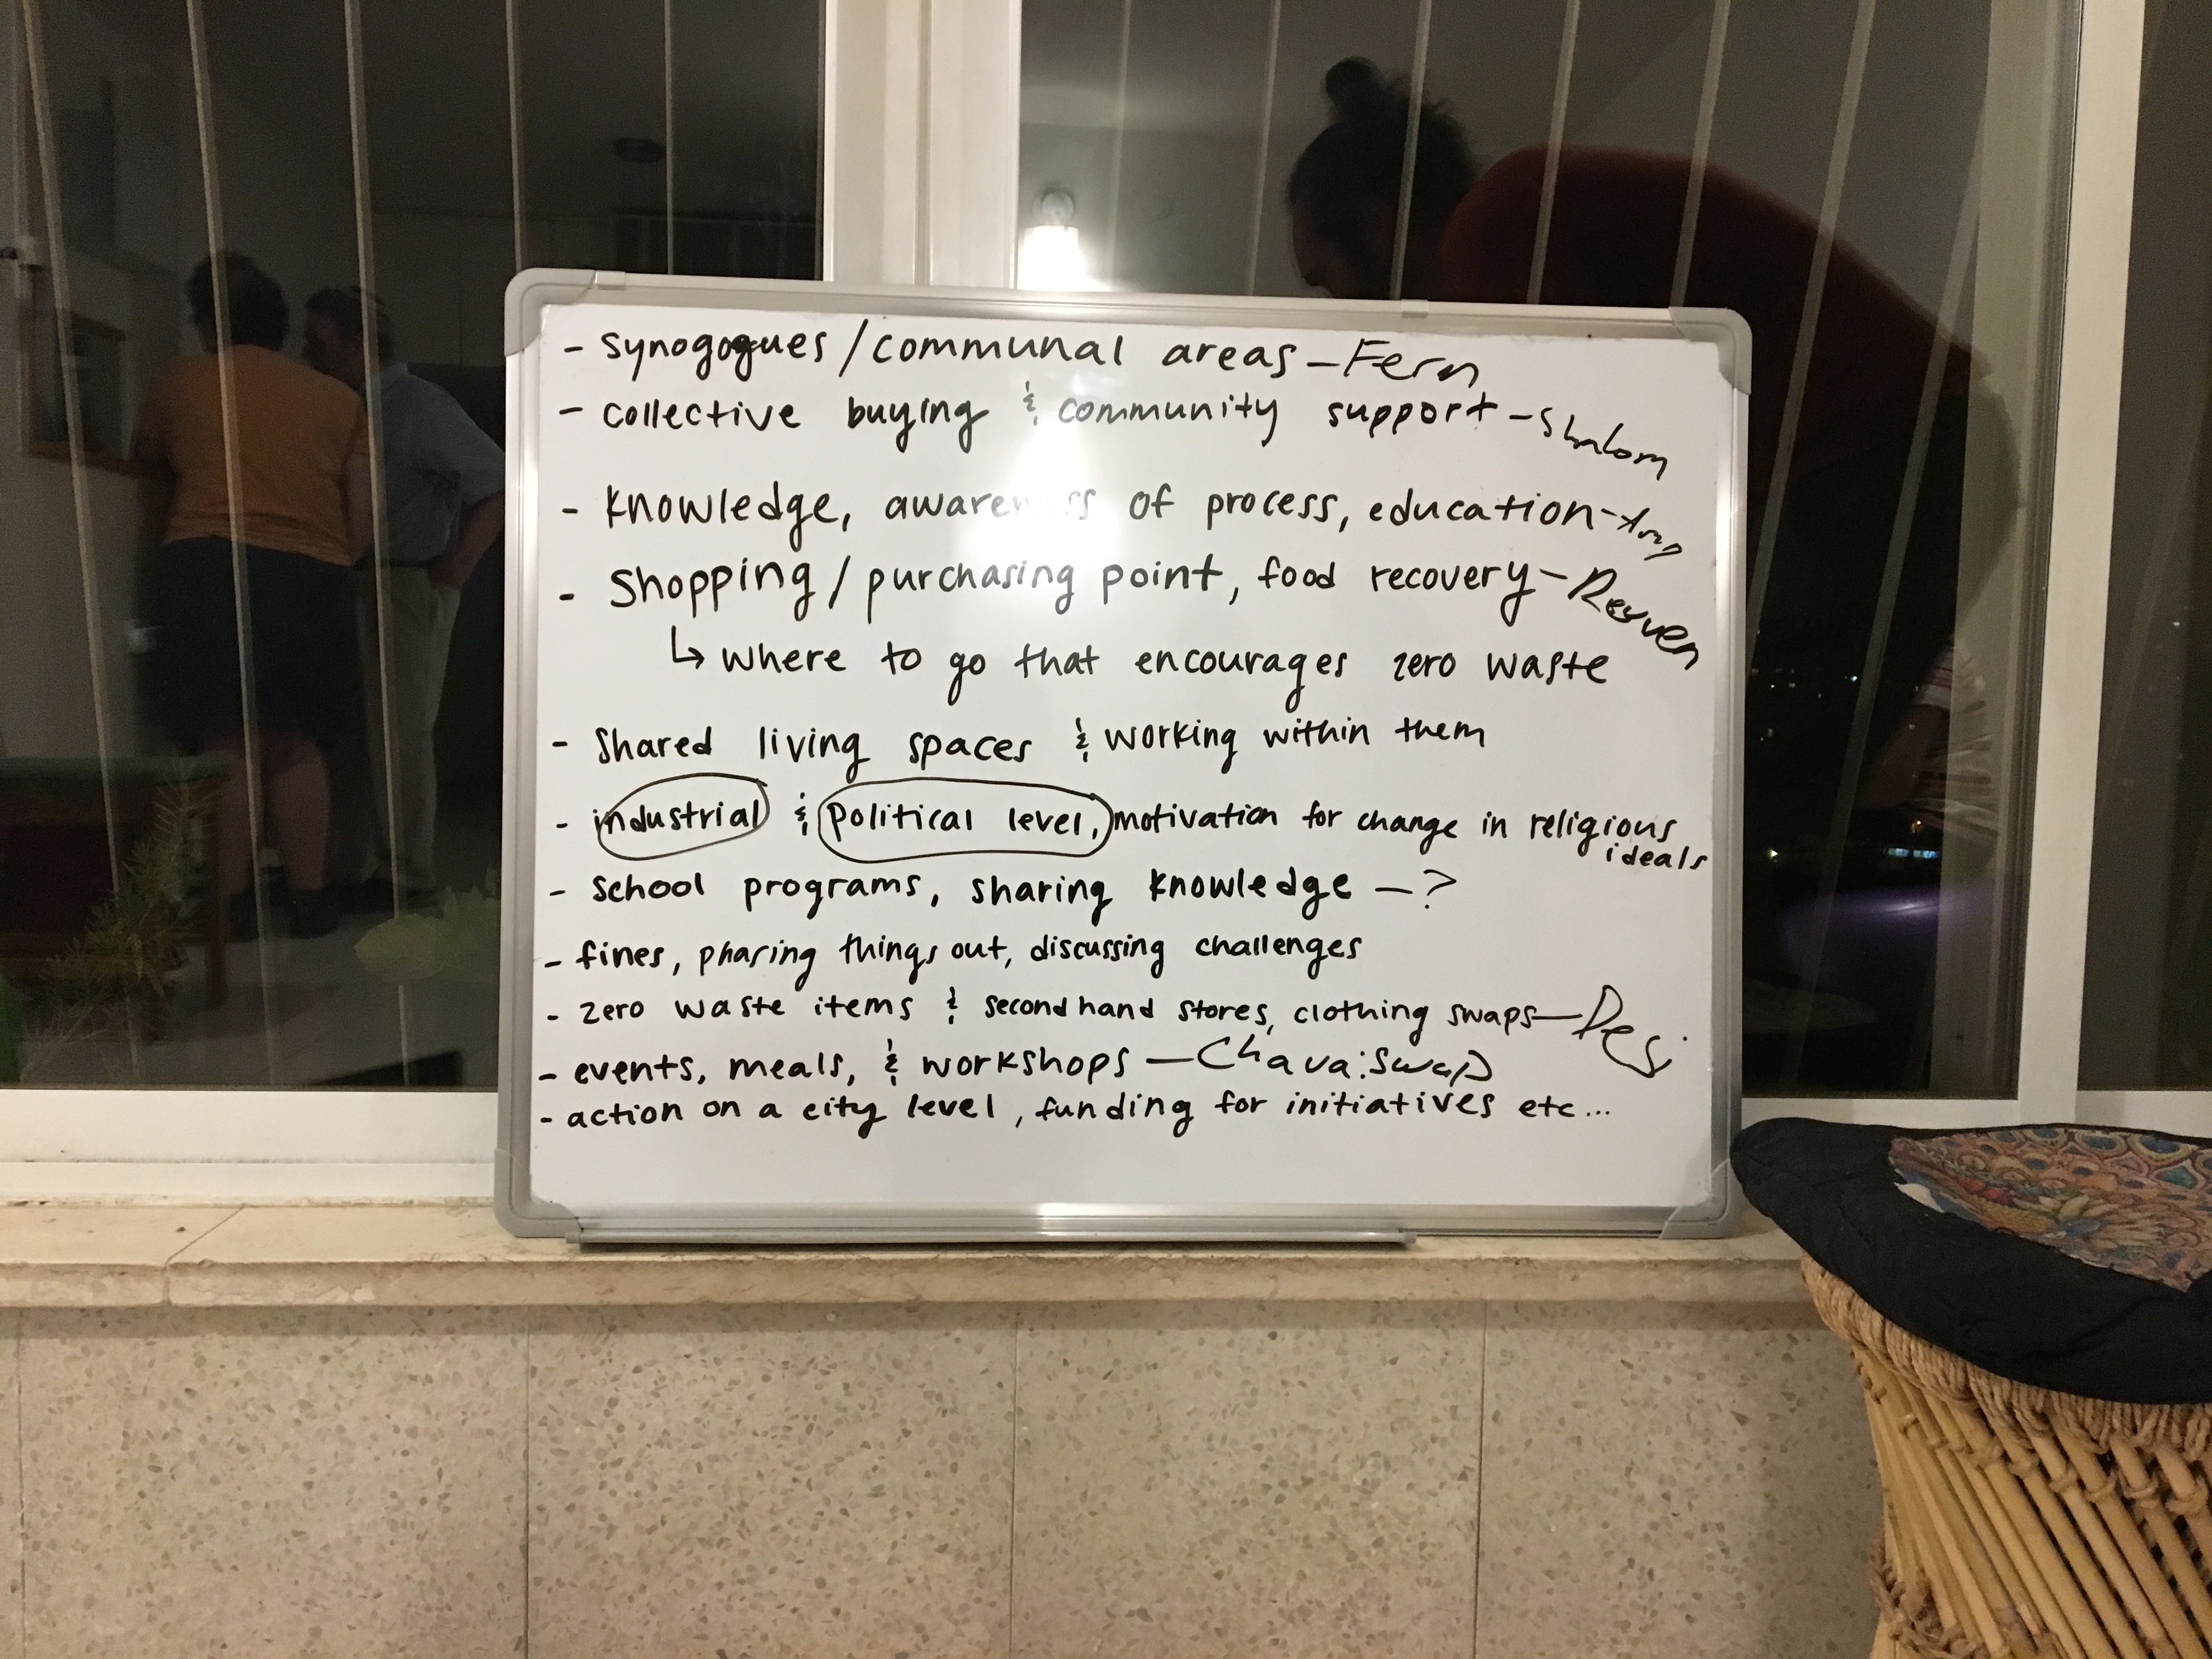 - synogogues / communal areas - Fern
- collective buying & community support - Shalom
- knowledge, awareness of process, education -
- Shopping / purchasing point, food recovery - Reuven
↳ where to go that encourages zero waste
- shared living spaces & working within them
- industrial & political level, motivation for change in religious
ideals
- school programs, sharing knowledge - ?
- fines, phasing things out, discussing challenges
- zero waste items & second hand stores, clothing swaps - Desi
- events, meals, & workshops - Chava: Swap
- action on a city level, funding for initiatives etc...